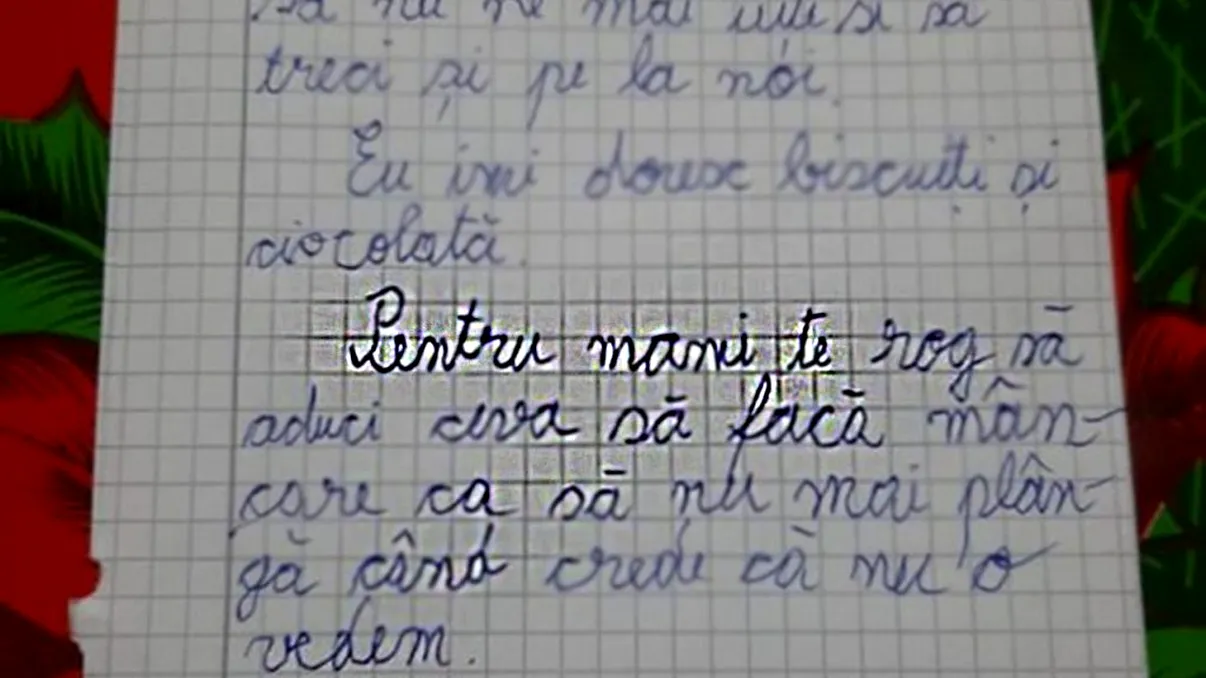 să nu ne mai uiți și să
treci și pe la noi.
Eu imi doresc biscuiți și
ciocolată.
Pentru mami te rog să
aduci ceva să facă mân-
care ca să nu mai plân-
gă când crede că nu o
vedem.